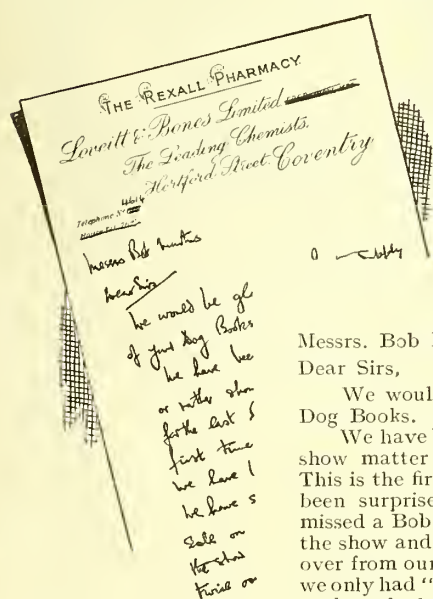 THE REXALL PHARMACY
Loveitt & Bones Limited
The Leading Chemists.
Hertford Street Coventry
Telephone Nº 4614
Messrs Bob Martins
Dear Sirs
We would be gl
of your Dog Books
We have bee
or rather show
for the last 5
first time
we have l
we have s
Sale on
the show
twice ov
Messrs. Bob
Dear Sirs,
We woul
Dog Books.
We have
show matter
This is the fir
been surprise
missed a Bob
the show and
over from our
we only had "